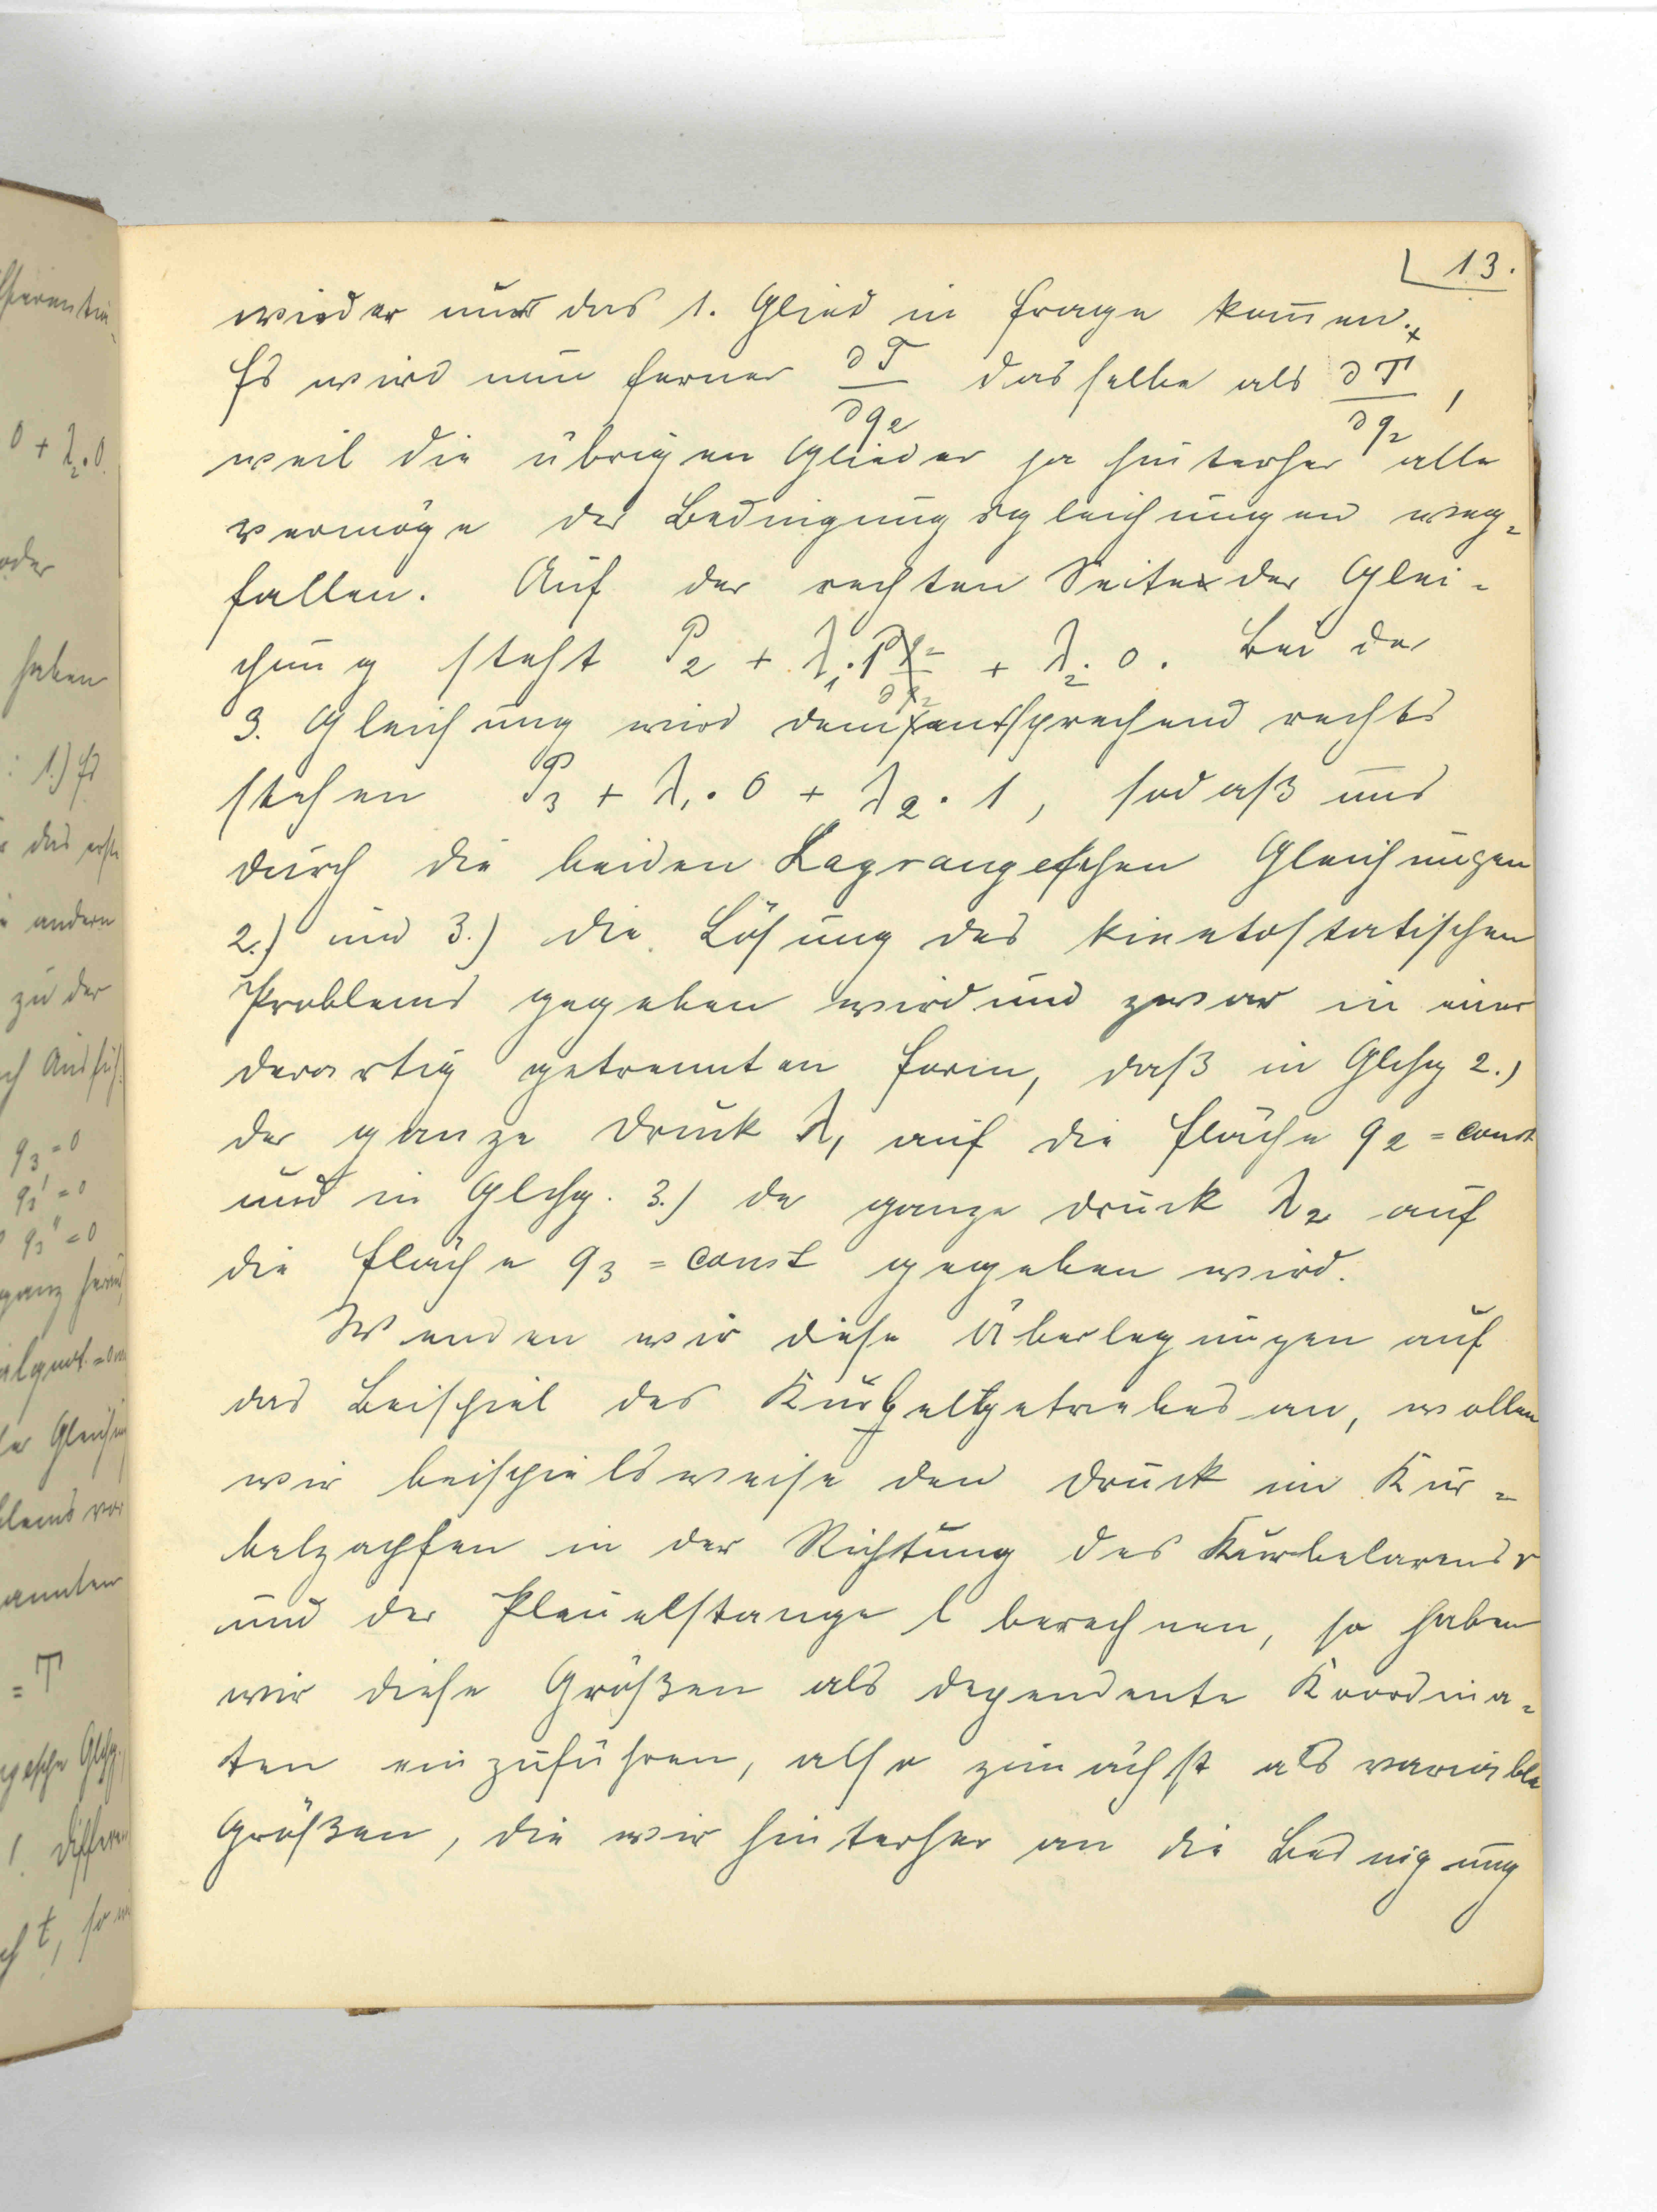 13.
wieder nur das 1. Glied in Frage kommen.
Es wird nun ferner ∂T/∂q2 dasselbe als ∂T*/∂q2,
weil die übrigen Glieder ja hinterher alle
vermöge der Bedingungsgleichungen weg=
fallen. Auf der rechten Seite der Glei-
chung steht P2 + λ1·1 + λ2·0. Bei der
3. Gleichung wird dementsprechend rechts
stehen P3 + λ1·0 + λ2·1, sodaß uns
durch die beiden Lagrangeschen Gleichungen
2.) und 3.) die Lösung des kinetostatischen
Problems gegeben wird und zwar in einer
derartig getrennten Form, daß in Glchg 2.)
der ganze Druck λ1 auf die Fläche q2 = const
und in Glchg. 3.) der ganze Druck λ2 auf
die Fläche q3 = const gegeben wird.
Wenden wir diese Überlegungen auf
das Beispiel des Kurbelgetriebes an, wollen
wir beispielsweise den Druck im Kur=
belzapfen in der Richtung des Kurbelarms r
und der Pleuelstange l berechnen, so haben
wir diese Größen als dependente Koordina=
ten einzuführen, also zunächst als variable
Größen, die wir hinterher an die Bedingung
0 + λ2·0.
oder
haben
: 1.) Es
das erste
andern
zu der
q3 = 0
q3' = 0
q3" = 0
ganz
= T
t, so